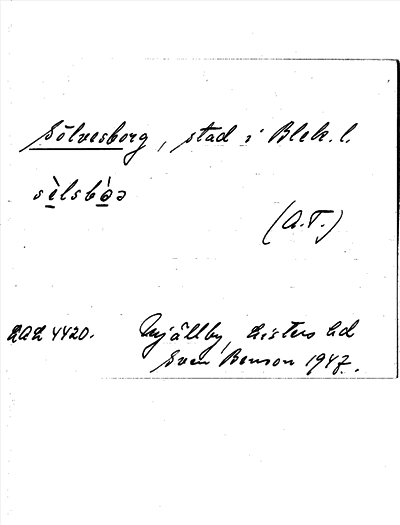 Sölvesborg, stad i Blek. l.
sèlsbòə
(A.T.)
LAL 4420. Mjällby, Listers hd
Sven Benson 1947.